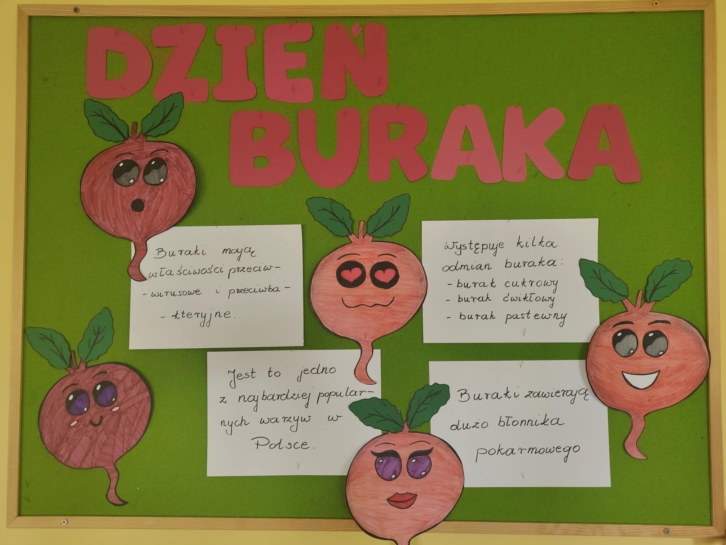 DZIEŃ
BURAKA
Buraki mają
właściwości przeciw-
-wirusowe i przeciwba-
-kteryjne.
Występuje kilka
odmian buraka:
- burak cukrowy
- burak ćwikłowy
- burak pastewny
Jest to jedno
z najbardziej popular-
nych warzyw w
Polsce.
Buraki zawierają
dużo błonnika
pokarmowego